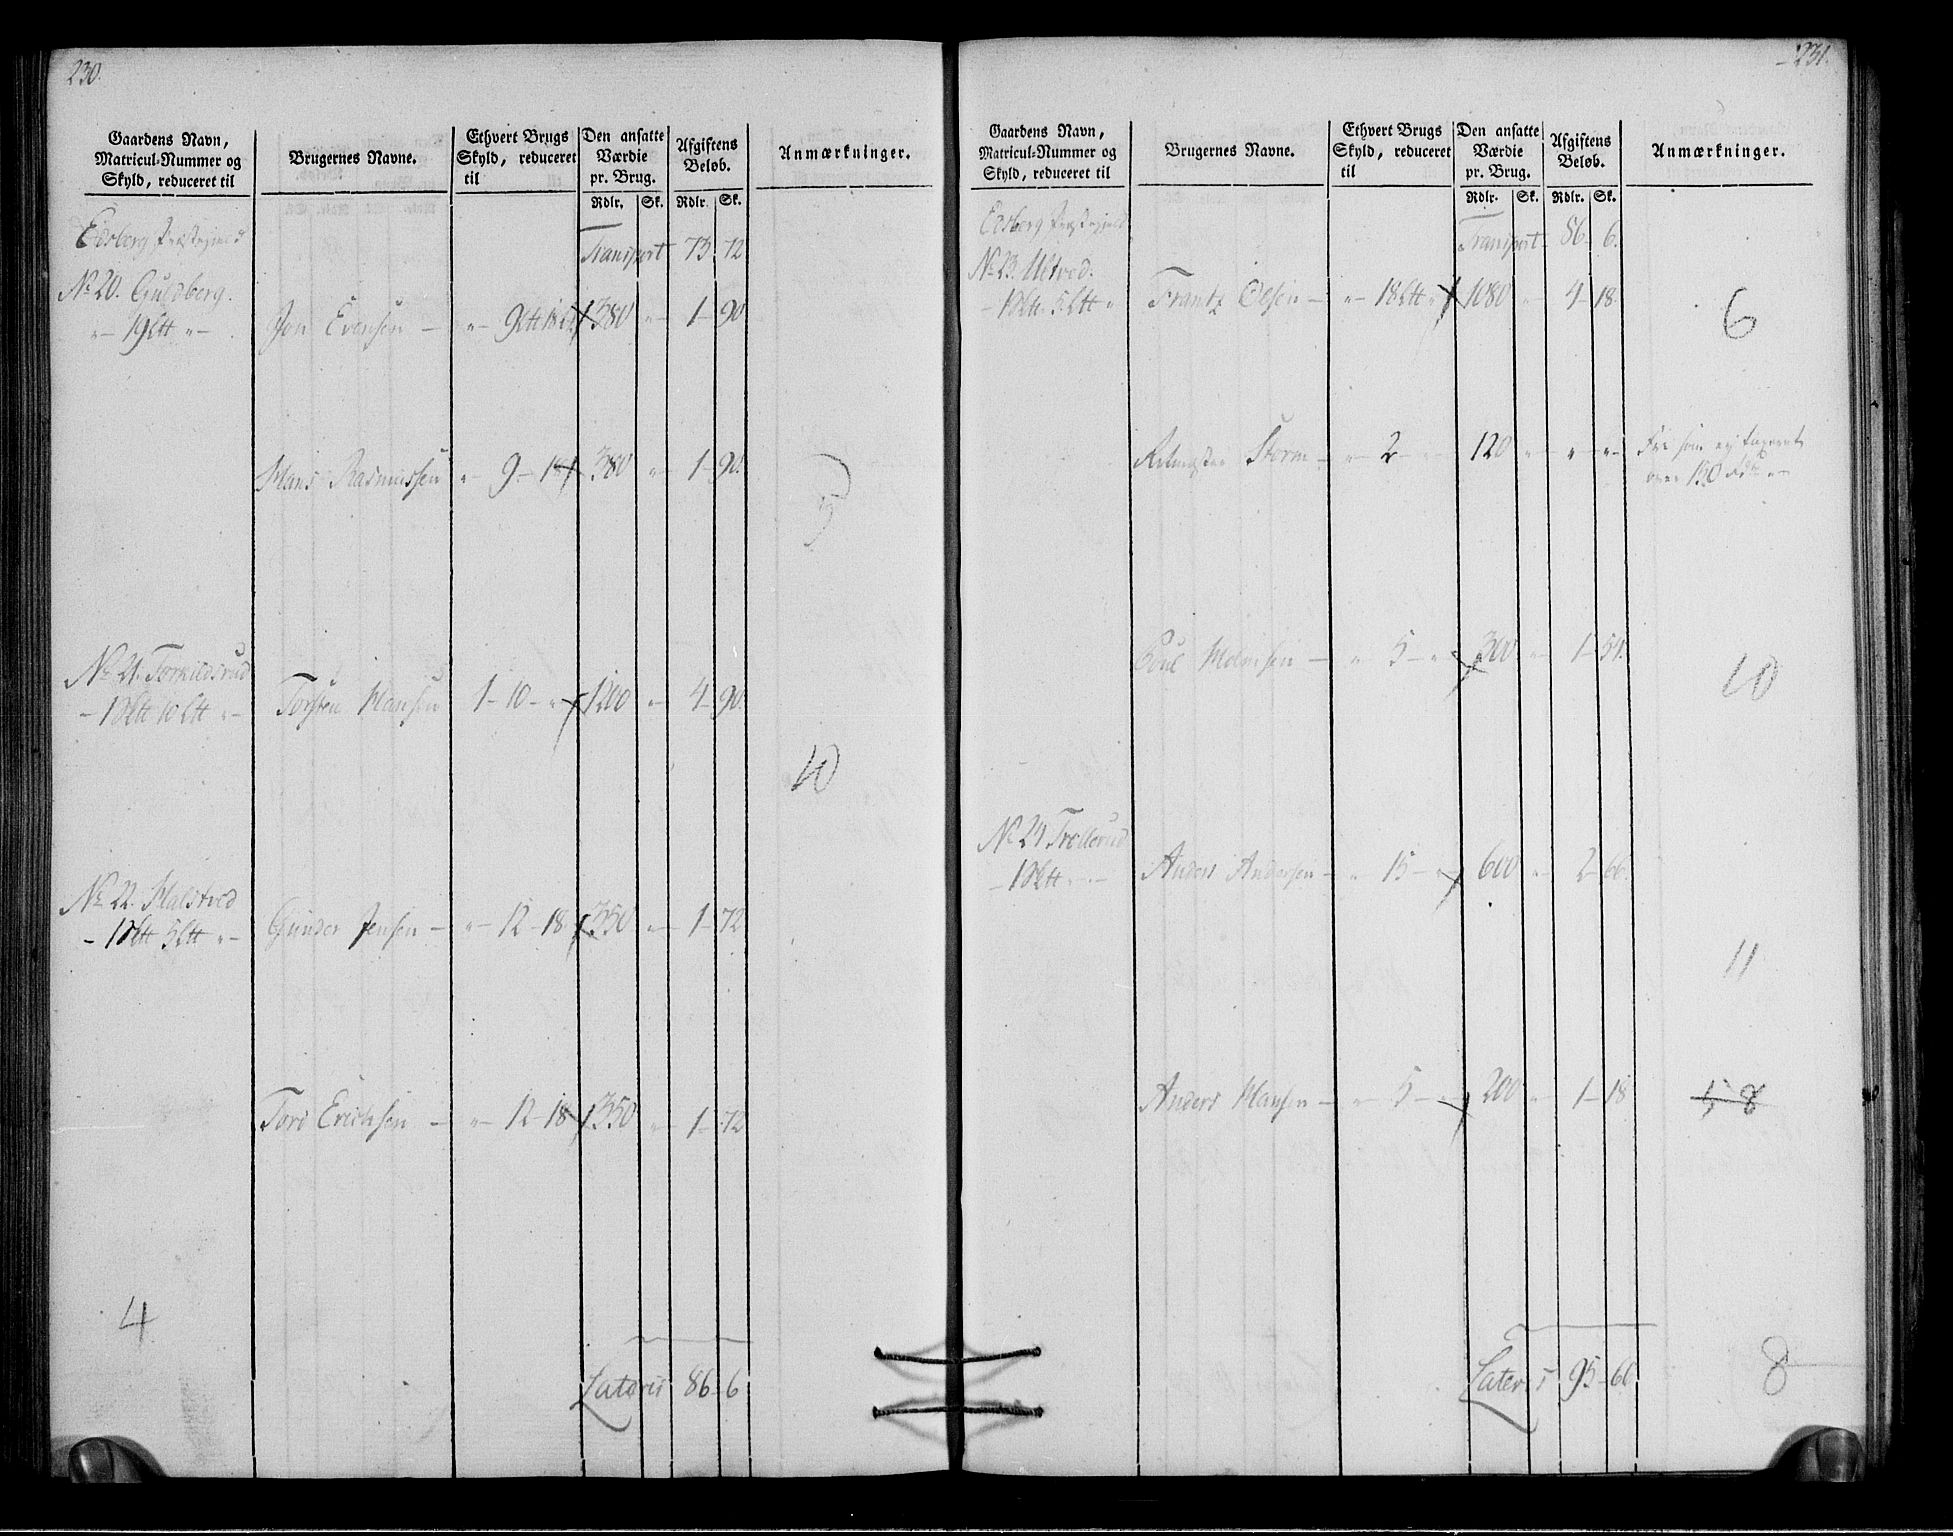 230.
Gaardens Navn,
Matricul-Nummer og
Skyld, reduceret til
Brugernes Navne.
Ethvert Brugs
Skyld, reduceret
til
Den ansatte
Værdie
pr. Brug.
Rdlr. Sk.
Afgiftens
Beløb.
Rdlr. Sk.
Anmærkninger.
Edsberg Præstegjeld
Transport 73 72
No 20. Guldberg.
"- 19 Ltt "- Jon Evensen - "- 9 Ltt 18 380 "- 1- 90
Hans Rasmussen "- 9- 18 380 "- 1- 90.
5
No 21. Tomildsrud
- 1 Sktt 10 Ltt "- Torsten Hansen 1- 10- "- 1200 "- 4- 90.
10
No 22. Halstved
- 1 Sktt 5 Ltt "- Gunder Jensen - "- 12- 18 350 "- 1- 72
Tord Erichsen - "- 12- 18 350 "- 1- 72
4
Lateris 86- 6
231.
Gaardens Navn,
Matricul-Nummer og
Skyld, reduceret til
Brugernes Navne.
Ethvert Brugs
Skyld, reduceret
til
Den ansatte
Værdie
pr. Brug.
Rdlr. Sk.
Afgiftens
Beløb.
Rdlr. Sk.
Anmærkninger.
Edsberg Præstegjeld
Transport 86- 6.
No 23. Ultved.
- 1 Sktt 5 Ltt " Frantz Olsen - "- 18 Ltt " 1080 " 4- 18
6
Ritmester Storm - "- 2- 120 " " "- Fri som ej taxeret
over 150 Rdr "-
Poul - " 5- " 300 " 1- 54.
10
No 24 Trollerud
- 1 Sktt "- Anders Andersen - " 15- " 600 " 2- 66.
11
Anders Hansen - "- 5- " 200 " 1- 18 5 8
Lateris 95- 66
8